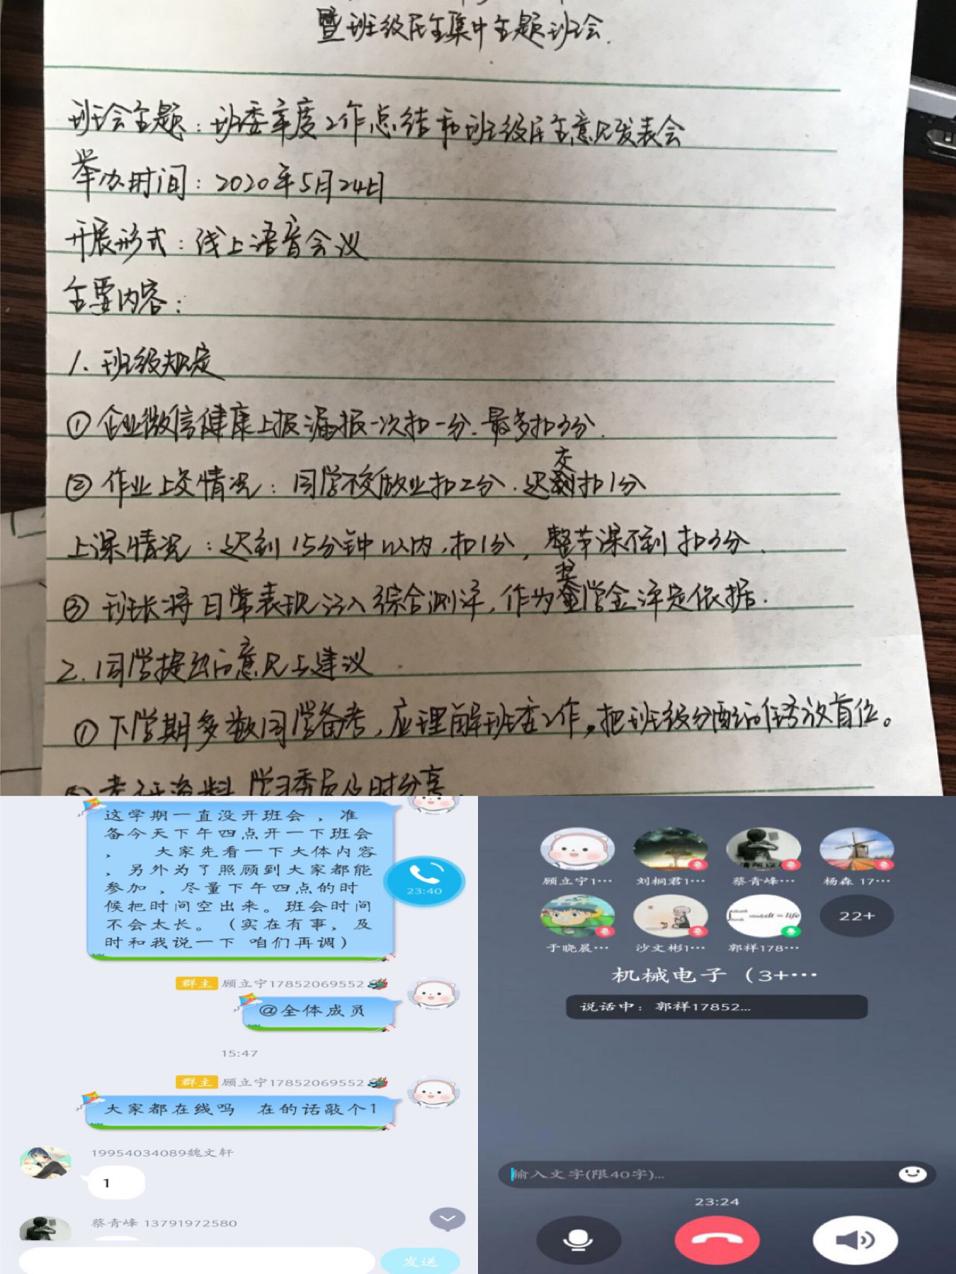 暨班级民主集中主题班会.
班会主题：班委年度工作总结和班级民主意见发表会
举办时间：2020年5月24日
开展形式：线上语音会议
主要内容：
1. 班级规定
① 企业微信健康上报漏报一次扣一分.最多扣3分.
② 作业上交情况：同学不交作业扣2分.迟交扣1分
上课情况：迟到15分钟以内,扣1分，整节课不到扣3分.
③ 班长将日常表现计入综合测评,作为奖学金评定依据.
2. 同学提出的意见与建议
① 下学期多数同学备考,应理解班委工作。把班级分配的任务放首位。
这学期一直没开班会，准
备今天下午四点开一下班会
， 大家先看一下大体内容
，另外为了照顾到大家都能
参加，尽量下午四点的时
候把时间空出来。班会时间
不会太长。（实在有事，及
时和我说一下 咱们再调）
23:40
群主 顾立宁17852069552
@全体成员
15:47
群主 顾立宁17852069552
大家都在线吗 在的话敲个1
19954034089魏文轩
1
蔡青峰 13791972580
发送
顾立宁1… 刘桐君1… 蔡青峰… 杨森 17…
22+
于晓晨… 沙文彬1… 郭祥178…
机械电子（3+…
说话中：郭祥17852...
输入文字(限40字)...
23:24